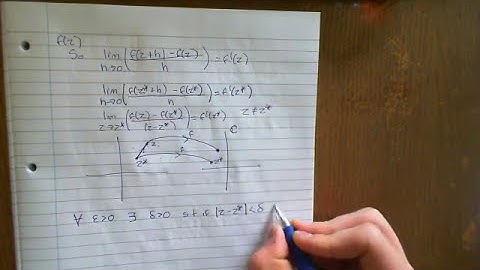 f(z)
So lim h→0 (f(z+h) - f(z) / h) = f'(z)
lim h→0 (f(z*+h) - f(z*) / h) = f'(z*)
lim z→z* (f(z) - f(z*) / |z-z*|) = f'(z*) z ≠ z*
ℂ
z f
z* f z*
∀ ε>0 ∃ δ>0 s.t if |z-z*|<δ